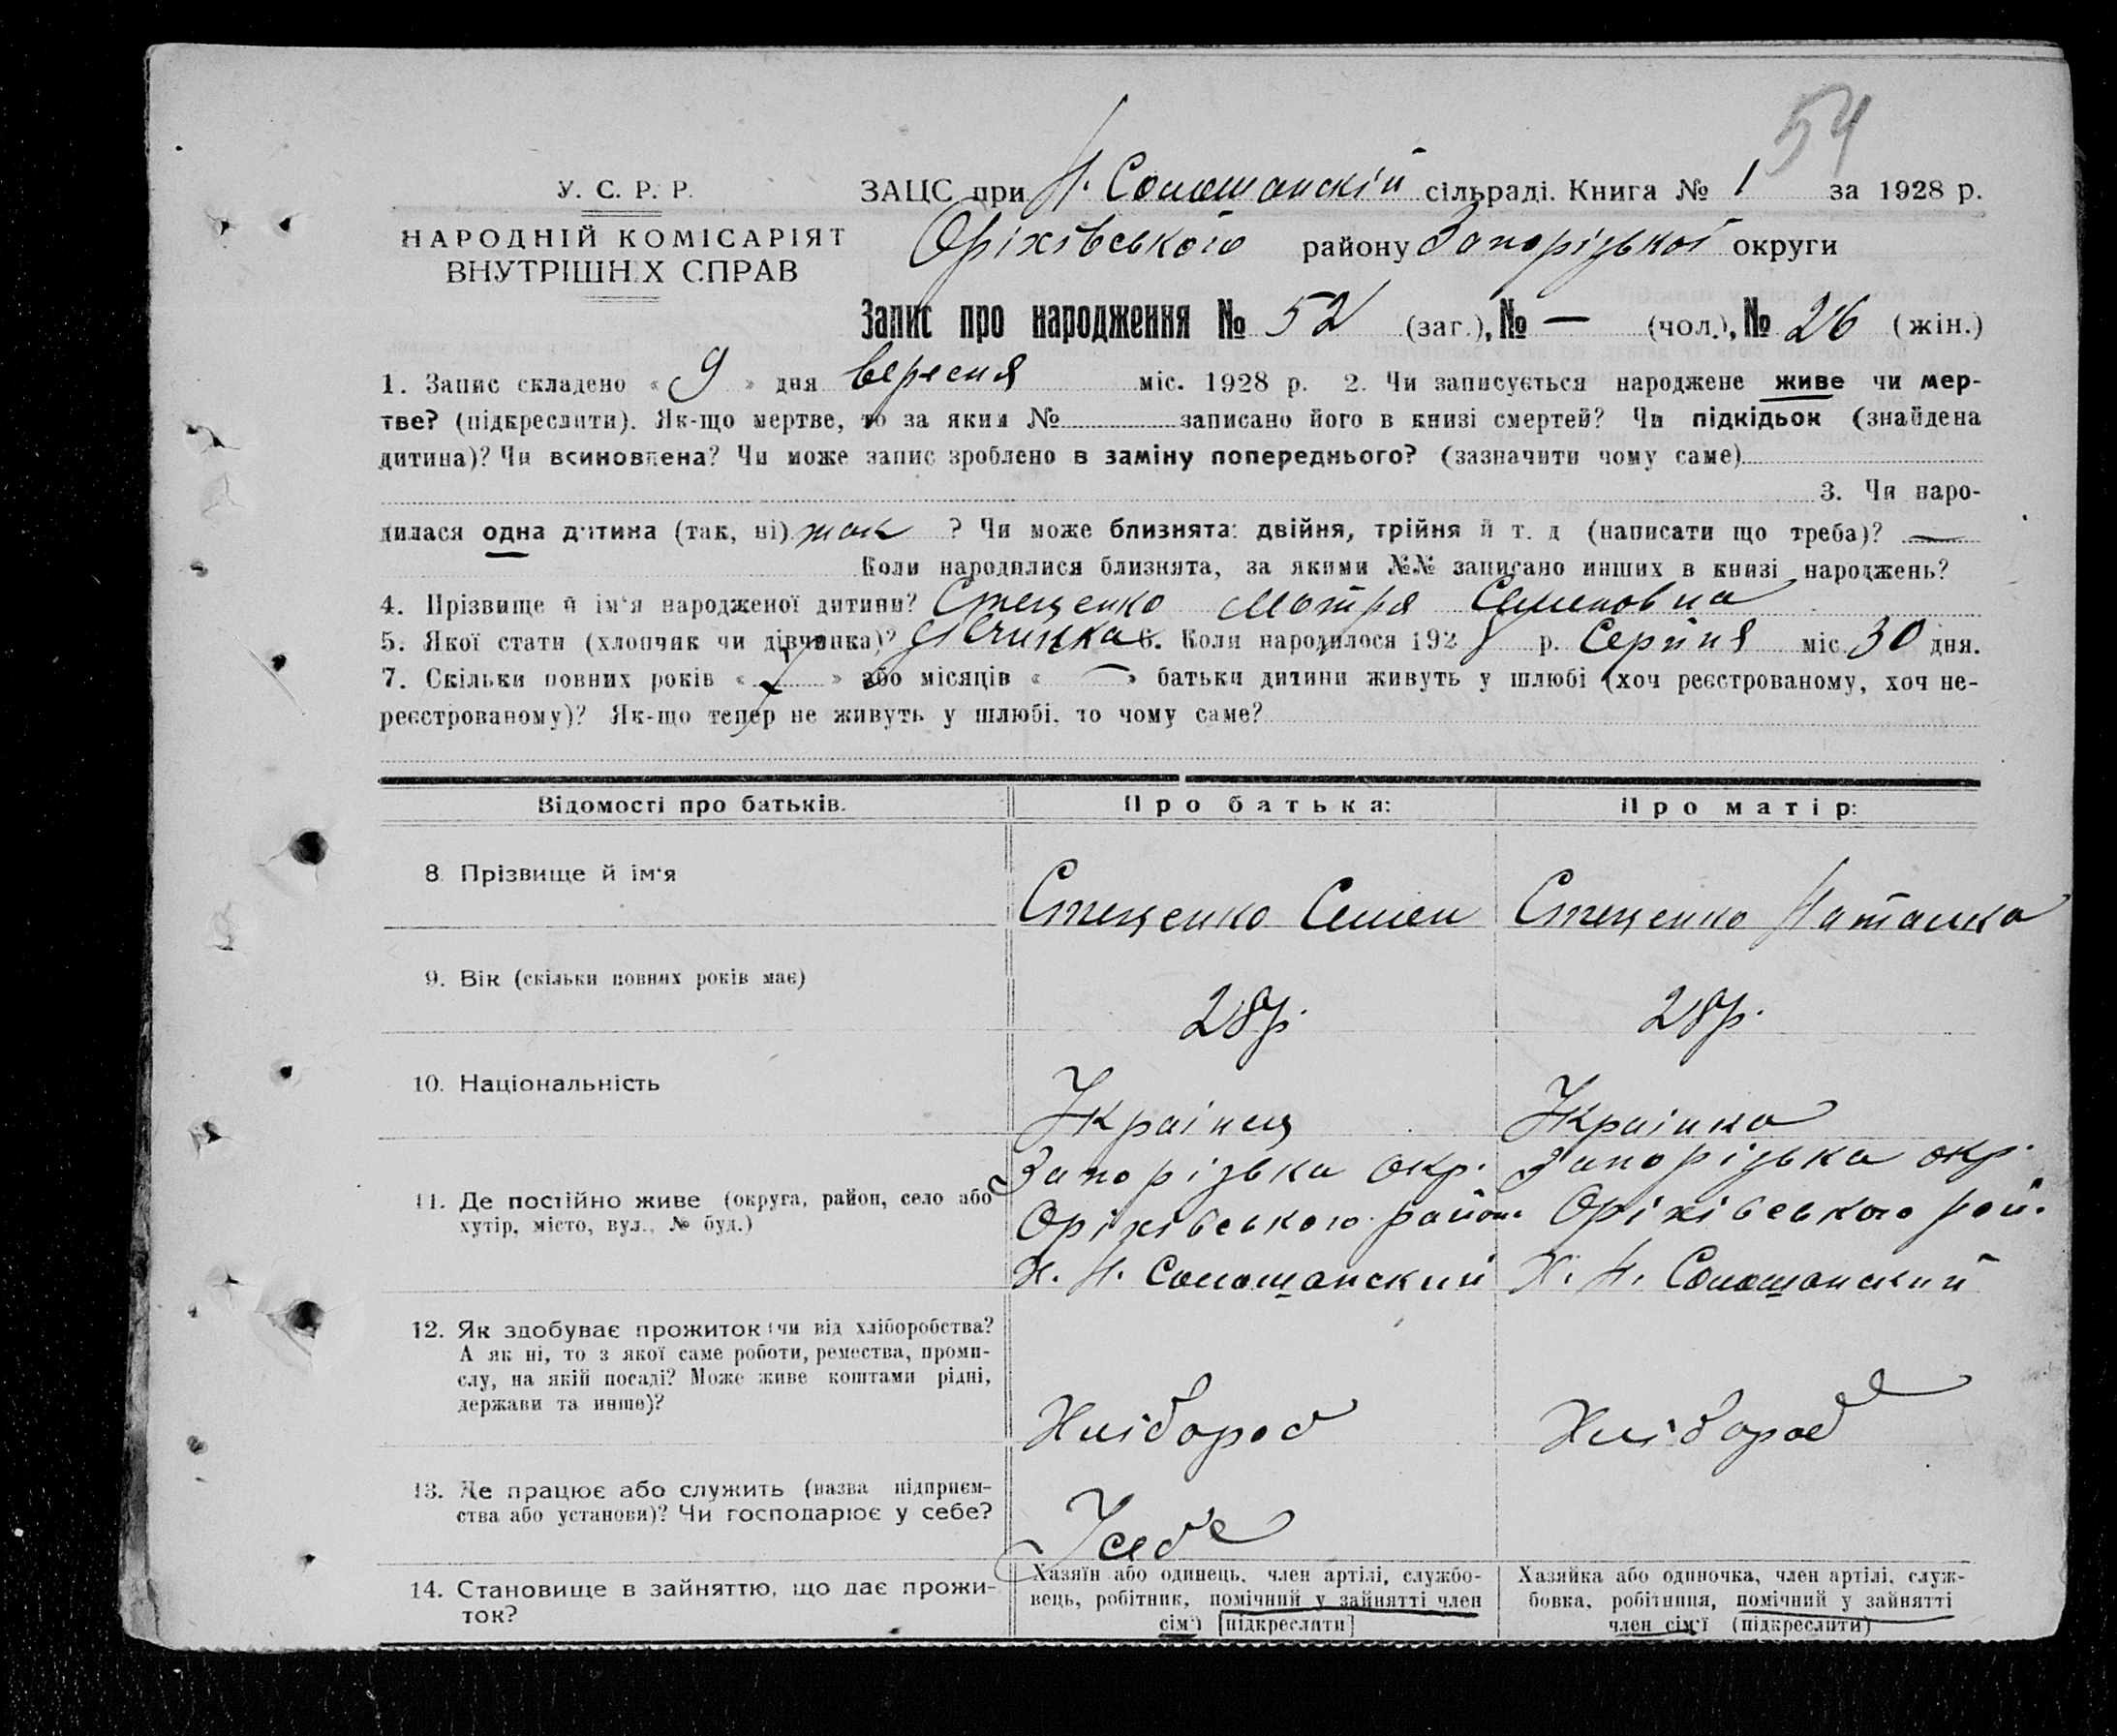 54
У. С. Р. Р.
НАРОДНІЙ КОМІСАРІЯТ
ВНУТРІШНІХ СПРАВ
ЗАЦС при Н. Солошанскій сільраді. Книга № 1 за 1928 р.
Оріхівського району Запорізької округи
Запис про народження № 52 (заг.), № — (чол.), № 26 (жін.)
1. Запис складено « 9 » дня Вересня міс. 1928 р. 2. Чи записується народжене живе чи мер-
тве? (підкреслити). Як-що мертве, то за яким № записано його в книзі смертей? Чи підкідьок (знайдена
дитина)? Чи всиновлена? Чи може запис зроблено в заміну попереднього? (зазначити чому саме)
3. Чи наро-
дилася одна дитина (так, ні) так ? Чи може близнята: двійня, трійня й т. д (написати що треба)? —
Коли народилися близнята, за якими №№ записано инших в книзі народжень?
4. Прізвище й ім'я народженої дитини? Стеценко Мотря Семеновна
5. Якої стати (хлопчик чи дівчинка)? Дівчинка 6. Коли народилося 1928 р. Серпня міс. 30 дня.
7. Скільки повних років « » або місяців « — » батьки дитини живуть у шлюбі (хоч реєстрованому, хоч не-
реєстрованому)? Як-що тепер не живуть у шлюбі, то чому саме?
Відомості про батьків. Про батька: Про матір:
8. Прізвище й ім'я Стеценко Семен Стеценко Наталка
9. Вік (скільки повних років має) 28р. 28р.
10. Національність Українец Украінка
11. Де постійно живе (округа, район, село або
хутір, місто, вул., № буд.)
Запорізька окр.
Оріхівського район
Х. Н. Солошанский
Запорізька окр.
Оріхівського рай.
Х. Н. Солошанский
12. Як здобуває прожиток (чи від хліборобства?
А як ні, то з якої саме роботи, ремества, проми-
слу, на якій посаді? Може живе коштами рідні,
держави та инше)?
Хлібороб
Хлібороб
13. Де працює або служить (назва підприєм-
ства або установи)? Чи господарює у себе?
У себе
14. Становище в зайняттю, що дає прожи-
ток?
Хазяїн або одинець, член артілі, службо-
вець, робітник, помічний у зайнятті член
сім'ї [підкреслити]
Хазяйка або одиночка, член артілі, служ-
бовка, робітниця, помічний у зайнятті
член сім'ї (підкреслити)